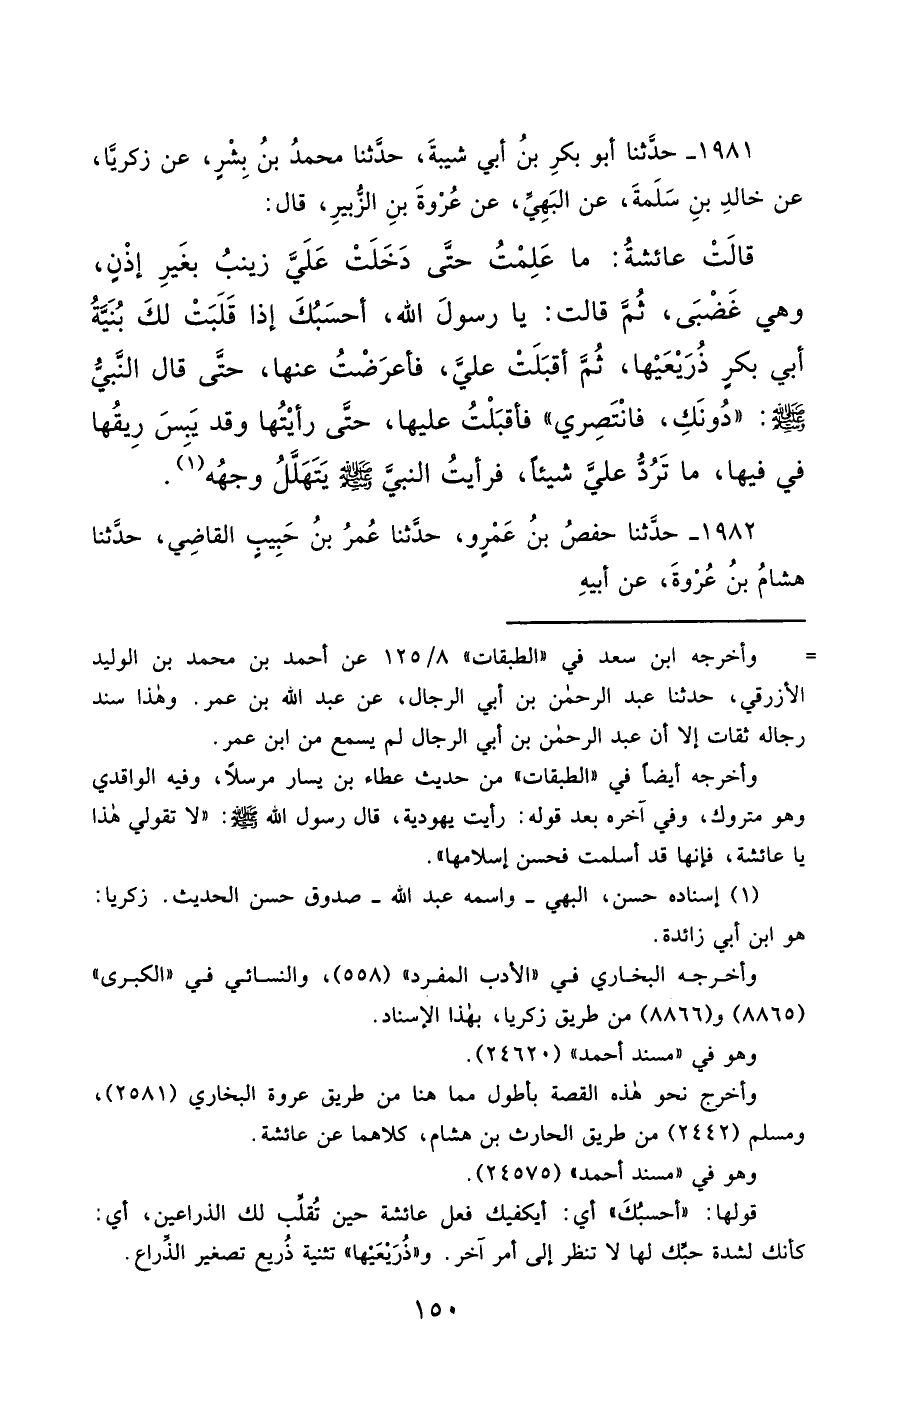 ١٩٨١ـ حدَّثنا أبو بكرِ بنُ أبي شيبةَ، حدَّثنا محمدُ بنُ بِشْرٍ، عن زكريَّا،
عن خالدِ بنِ سَلَمةَ، عن البَهِيِّ، عن عُرْوةَ بنِ الزُّبيرِ، قال:
قالَتْ عائشةُ: ما عَلِمْتُ حتَّى دَخَلَتْ عَلَيَّ زينبُ بغَيرِ إذْنٍ،
وهي غَضْبَى، ثُمَّ قالت: يا رسولَ الله، أحسَبُكَ إذا قَلَبَتْ لكَ بُنَيَّةُ
أبي بكرٍ ذُرَيْعَيْها، ثُمَّ أقبَلَتْ عليَّ، فأعرَضْتُ عنها، حتَّى قال النَّبيُّ
ﷺ: «دُونَكِ، فانْتَصِري» فأقبَلْتُ عليها، حتَّى رأيْتُها وقد يَبِسَ رِيقُها
في فيها، ما تَرُدُّ عليَّ شيئاً، فرأيتُ النبيَّ ﷺ يَتَهَلَّلُ وجهُه(١).
١٩٨٢ـ حدَّثنا حفصُ بنُ عَمْرٍو، حدَّثنا عُمرُ بنُ حَبِيبٍ القاضِي، حدَّثنا
هشامُ بنُ عُرْوةَ، عن أبيهِ
= وأخرجه ابن سعد في «الطبقات» ١٢٥/٨ عن أحمد بن محمد بن الوليد
الأزرقي، حدثنا عبد الرحمٰن بن أبي الرجال، عن عبد الله بن عمر. وهٰذا سند
رجاله ثقات إلا أن عبد الرحمٰن بن أبي الرجال لم يسمع من ابن عمر.
وأخرجه أيضاً في «الطبقات» من حديث عطاء بن يسار مرسلاً، وفيه الواقدي
وهو متروك، وفي آخره بعد قوله: رأيت يهودية، قال رسول الله ﷺ: «لا تقولي هٰذا
يا عائشة، فإنها قد أسلمت فحسن إسلامها».
(١) إسناده حسن، البهي ـ واسمه عبد الله ـ صدوق حسن الحديث. زكريا:
هو ابن أبي زائدة.
وأخرجه البخاري في «الأدب المفرد» (٥٥٨)، والنسائي في «الكبرى»
(٨٨٦٥) و(٨٨٦٦) من طريق زكريا، بهٰذا الإسناد.
وهو في «مسند أحمد» (٢٤٦٢٠).
وأخرج نحو هٰذه القصة بأطول مما هنا من طريق عروة البخاري (٢٥٨١)،
ومسلم (٢٤٤٢) من طريق الحارث بن هشام، كلاهما عن عائشة.
وهو في «مسند أحمد» (٢٤٥٧٥).
قولها: «أحسبُكَ» أي: أيكفيك فعل عائشة حين تُقلِّب لك الذراعين، أي:
كأنك لشدة حبِّك لها لا تنظر إلى أمر آخر. و«ذُرَيْعَيْها» تثنية ذُريع تصغير الذِّراع.
١٥٠